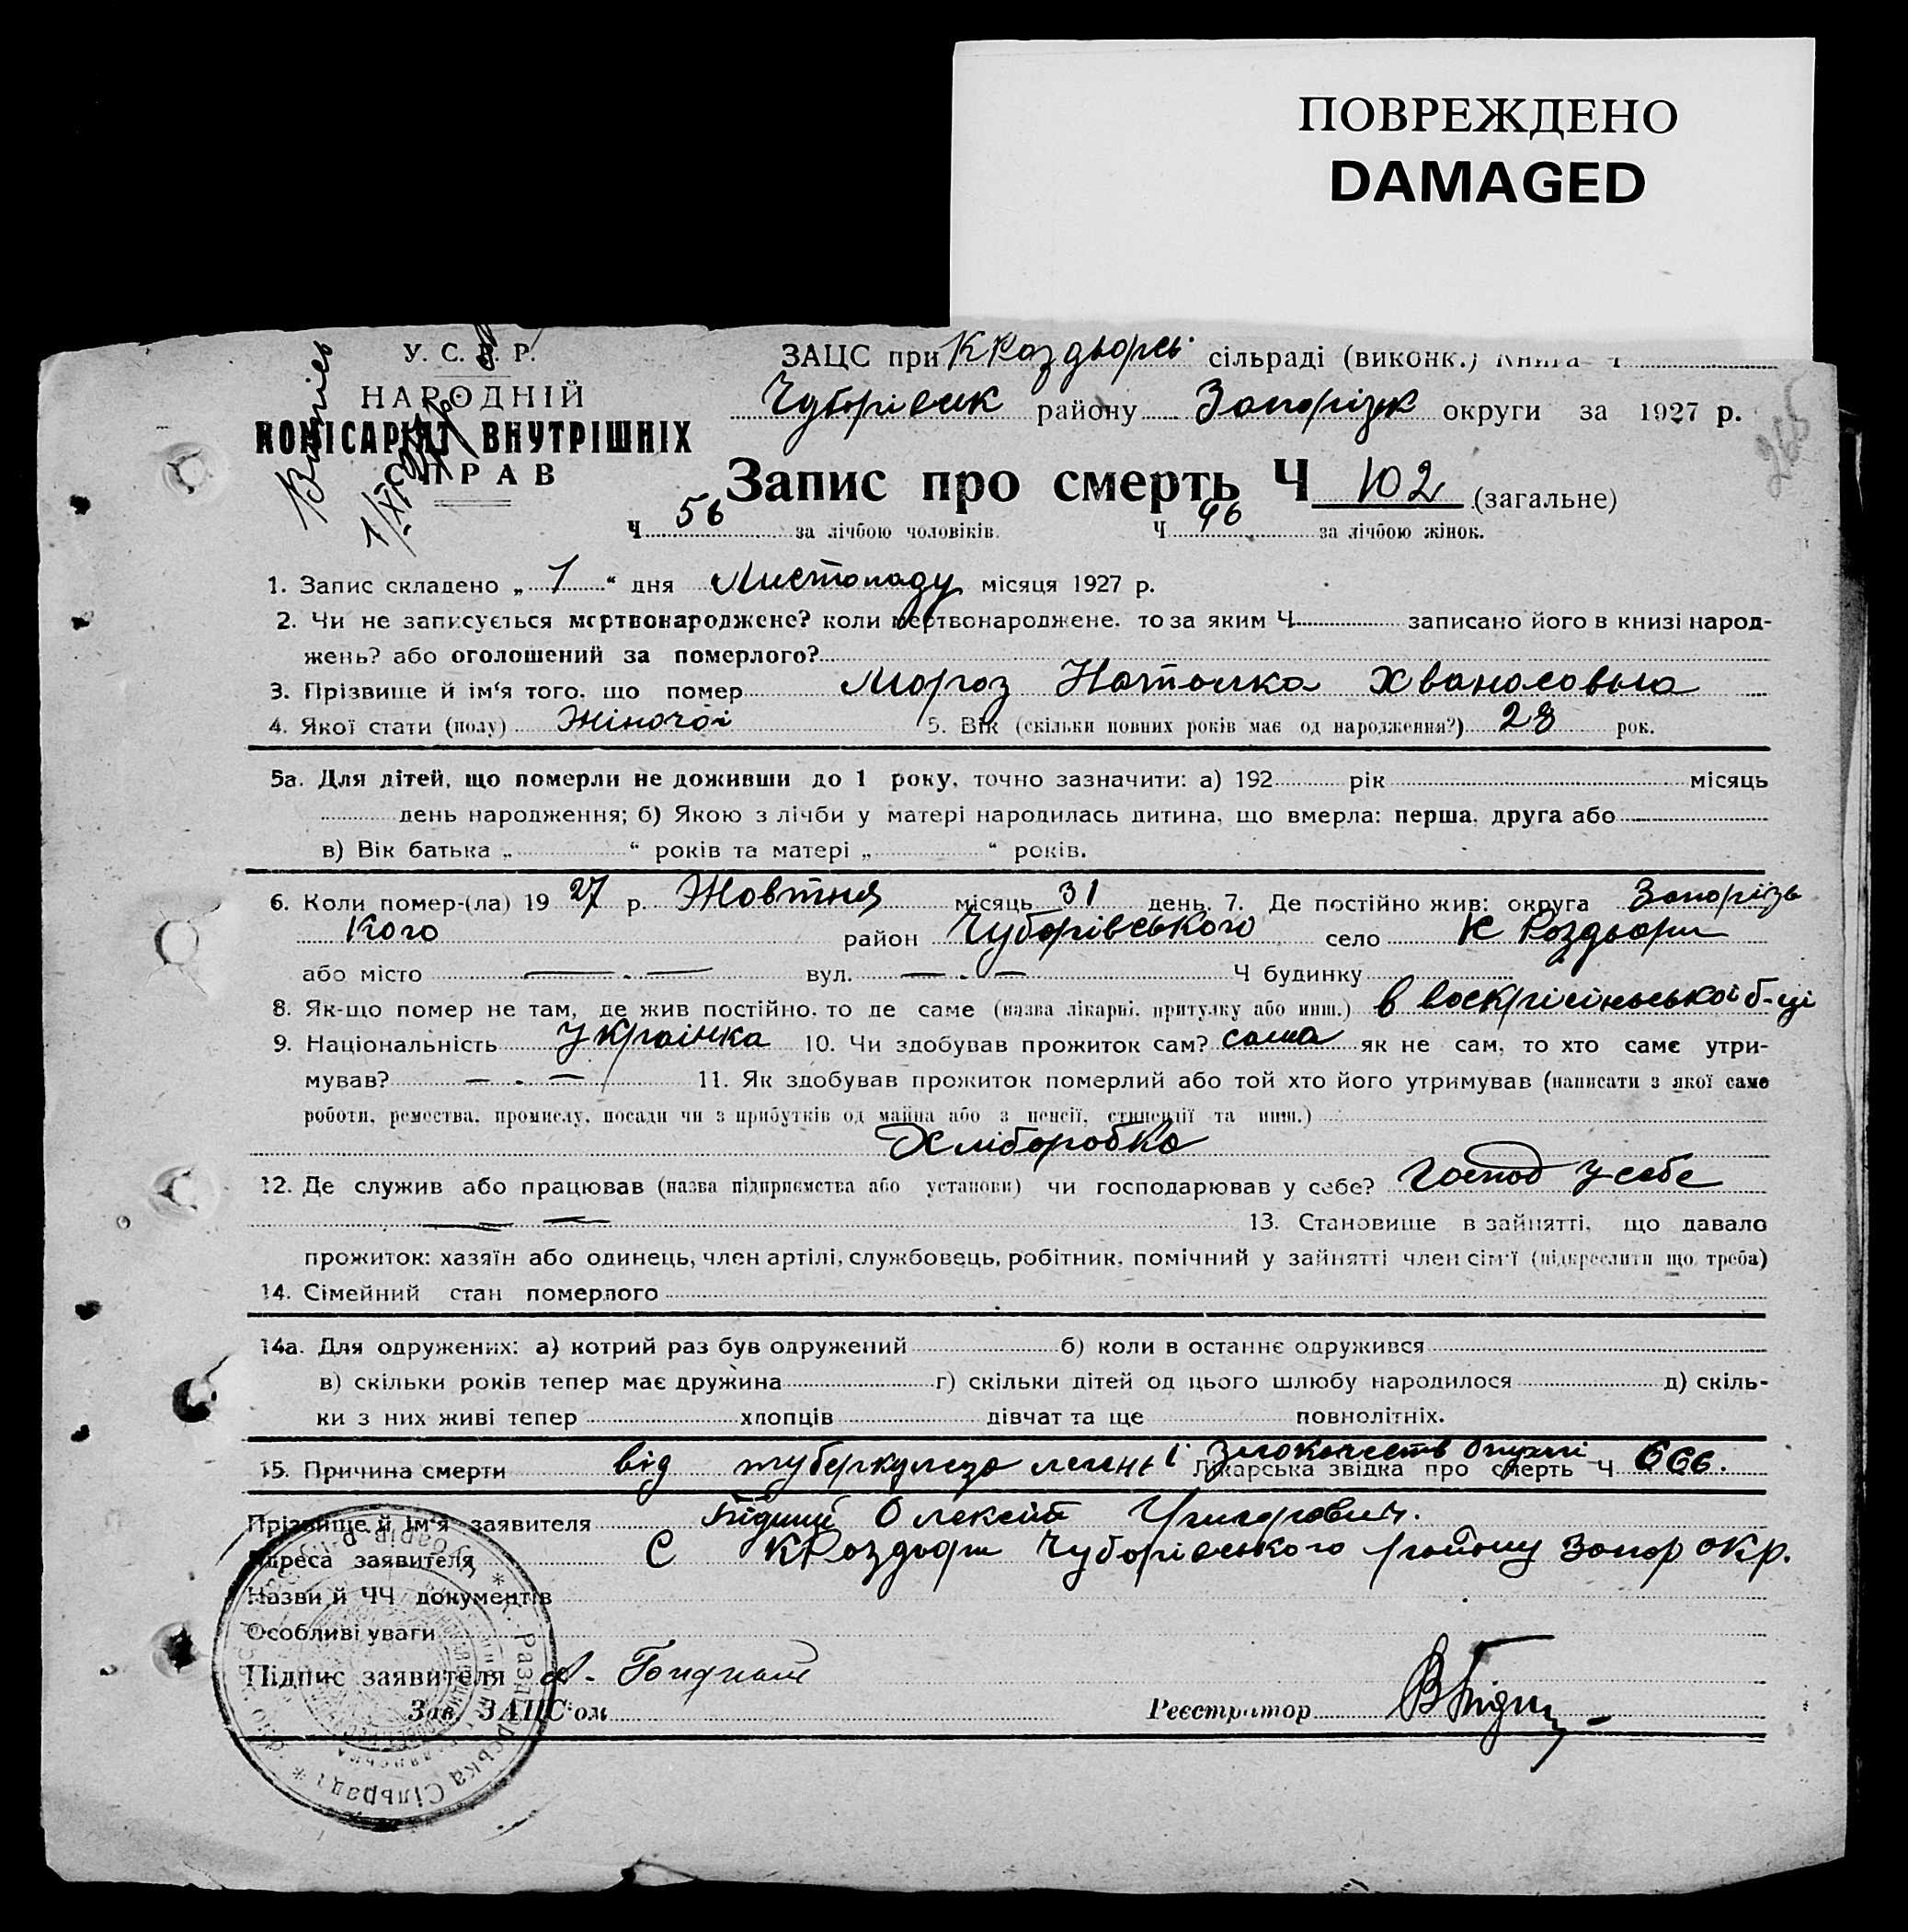 ПОВРЕЖДЕНО
DAMAGED
У. С. Р. Р.
НАРОДНІЙ
КОМІСАРІЯТ ВНУТРІШНІХ
СПРАВ
ЗАЦС при К Роздьорсь сільраді (виконк.) Книга Ч
Чубарівськ району Запоріжж округи за 1927 р.
265
Запис про смерть Ч 102 (загальне)
Ч 56 за лічбою чоловіків. Ч 46 за лічбою жінок.
1. Запис складено „ 1 “ дня Листопаду місяця 1927 р.
2. Чи не записується мертвонароджене? коли мертвонароджене, то за яким Ч записано його в книзі народ-
жень? або оголошений за померлого?
3. Прізвище й ім‘я того, що помер Мороз Наталка Хванасовна
4. Якої стати (полу) Жіночої 5. Вік (скільки повних років має од народження?) 28 рок.
5а. Для дітей, що померли не доживши до 1 року, точно зазначити: а) 192 рік місяць
день народження; б) Якою з лічби у матері народилась дитина, що вмерла: перша, друга або
в) Вік батька „ “ років та матері „ “ років.
6. Коли помер-(ла) 19 27 р. Жовтня місяць 31 день. 7. Де постійно жив: округа Запорізь
кого район Чубарівського село К Роздьори
або місто — . — вул. — . — Ч будинку
8. Як-що помер не там, де жив постійно, то де саме (назва лікарні, притулку або инш.) в воскрісіньської б-ці
9. Національність Українка 10. Чи здобував прожиток сам? сама як не сам, то хто саме утри-
мував? — . — 11. Як здобував прожиток померлий або той хто його утримував (написати з якої само
роботи, ремества, промислу, посади чи з прибутків од майна або з пенсії, стипендії та инш.)
Хліборобка
12. Де служив або працював (назва підприємства або установи) чи господарював у себе? Господ у себе
— — 13. Становище в зайнятті, що давало
прожиток: хазяїн або одинець, член артілі, службовець, робітник, помічний у зайнятті член сім‘ї (підкреслити що треба)
14. Сімейний стан померлого
14а. Для одружених: а) котрий раз був одружений б) коли в останнє одружився
в) скільки років тепер має дружина г) скільки дітей од цього шлюбу народилося д) скіль-
ки з них живі тепер хлопців дівчат та ще повнолітніх.
15. Причина смерти від туберкульоза легень і злокачеств опухлі Лікарська звідка про смерть Ч 666.
Прізвище й ім‘я заявителя Олексій Григорович.
Адреса заявителя С К Роздьори Чубарівського району Запор окр.
Назви й ЧЧ документів
Особливі уваги
Підпис заявителя
Зав. ЗАЦС‘ом Реєстратор
Сільрада